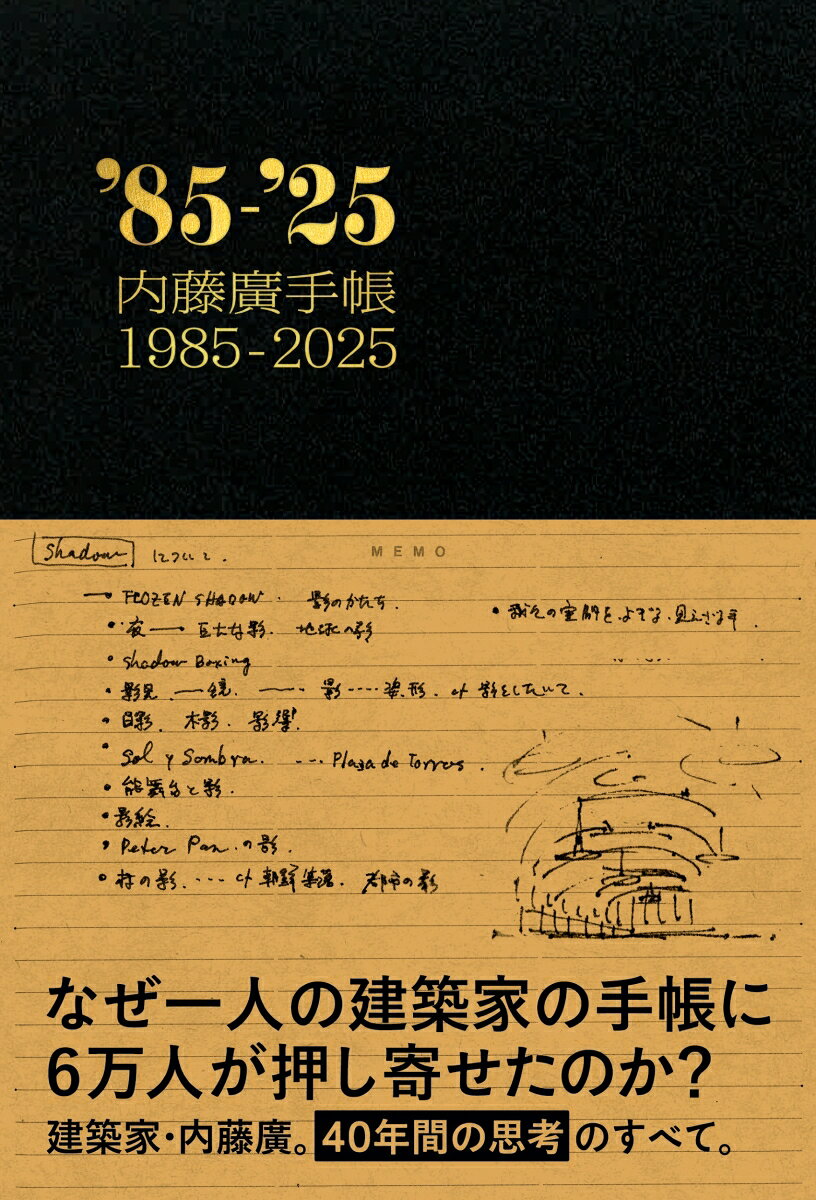 ’85-’25
内藤廣手帳
1985-2025
MEMO
Shadow について.
FROZEN SHADOW. 影のかたち.
夜 — 巨大な影. 地球の影
Shadow Boxing
影見 — 鏡. — 影····姿.形.
日影. 木影. 影響.
Sol y Sombra. --- Plaza de Torros.
能舞台と影.
影絵.
Peter Pan の影.
村の影. ---- cf 朝鮮集落. 都市の影
なぜ一人の建築家の手帳に
6万人が押し寄せたのか?
建築家・内藤廣。40年間の思考のすべて。